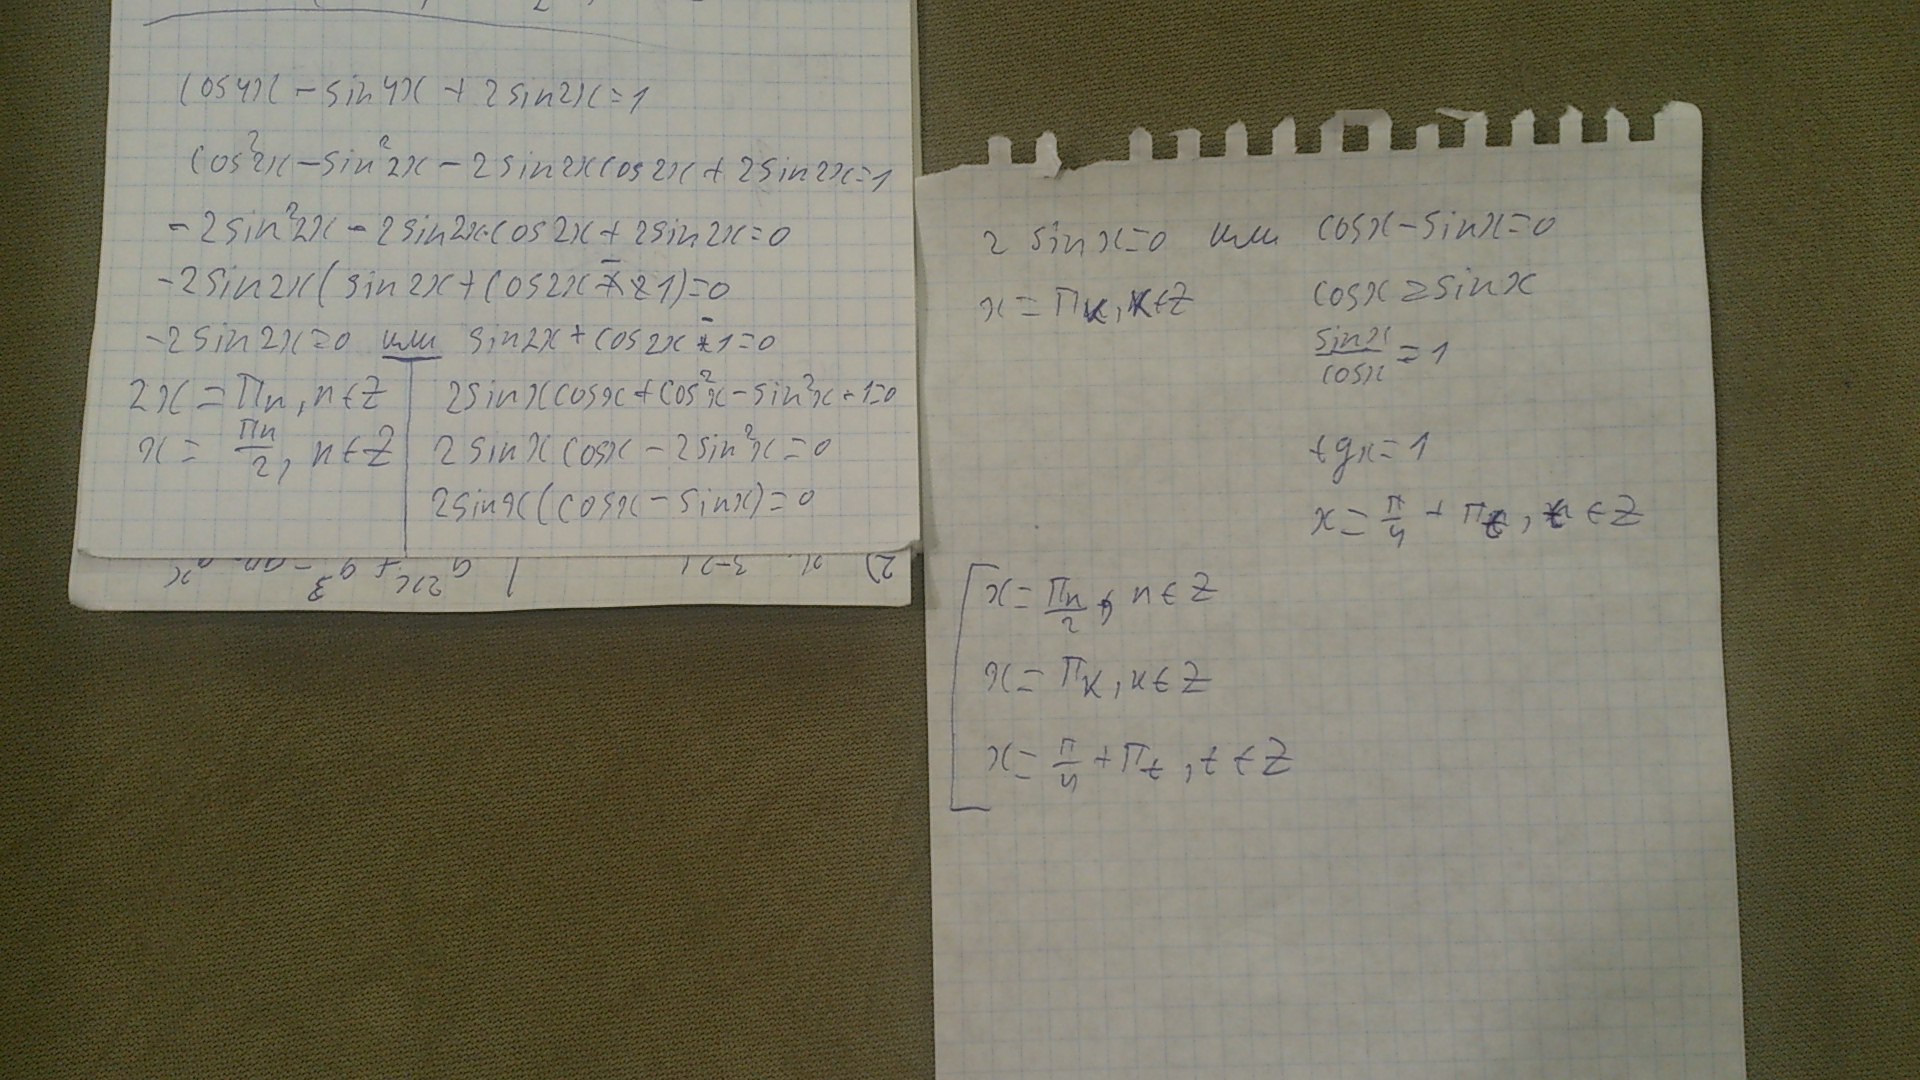 cos4x - sin4x + 2sin2x = 1
cos²2x - sin²2x - 2sin2xcos2x + 2sin2x = 1
-2sin²2x - 2sin2x·cos2x + 2sin2x = 0
-2sin2x(sin2x + cos2x - 1) = 0
-2sin2x = 0 или sin2x + cos2x - 1 = 0
2x = πn, n∈Z
x = πn/2, n∈Z
2sinxcosx + cos²x - sin²x - 1 = 0
2sinxcosx - 2sin²x = 0
2sinx(cosx - sinx) = 0
2 sinx = 0 или cosx - sinx = 0
x = πk, k∈Z
cosx = sinx
sinx/cosx = 1
tgx = 1
x = π/4 + πt, t ∈ Z
x = πn/2, n ∈ Z
x = πk, k ∈ Z
x = π/4 + πt, t ∈ Z